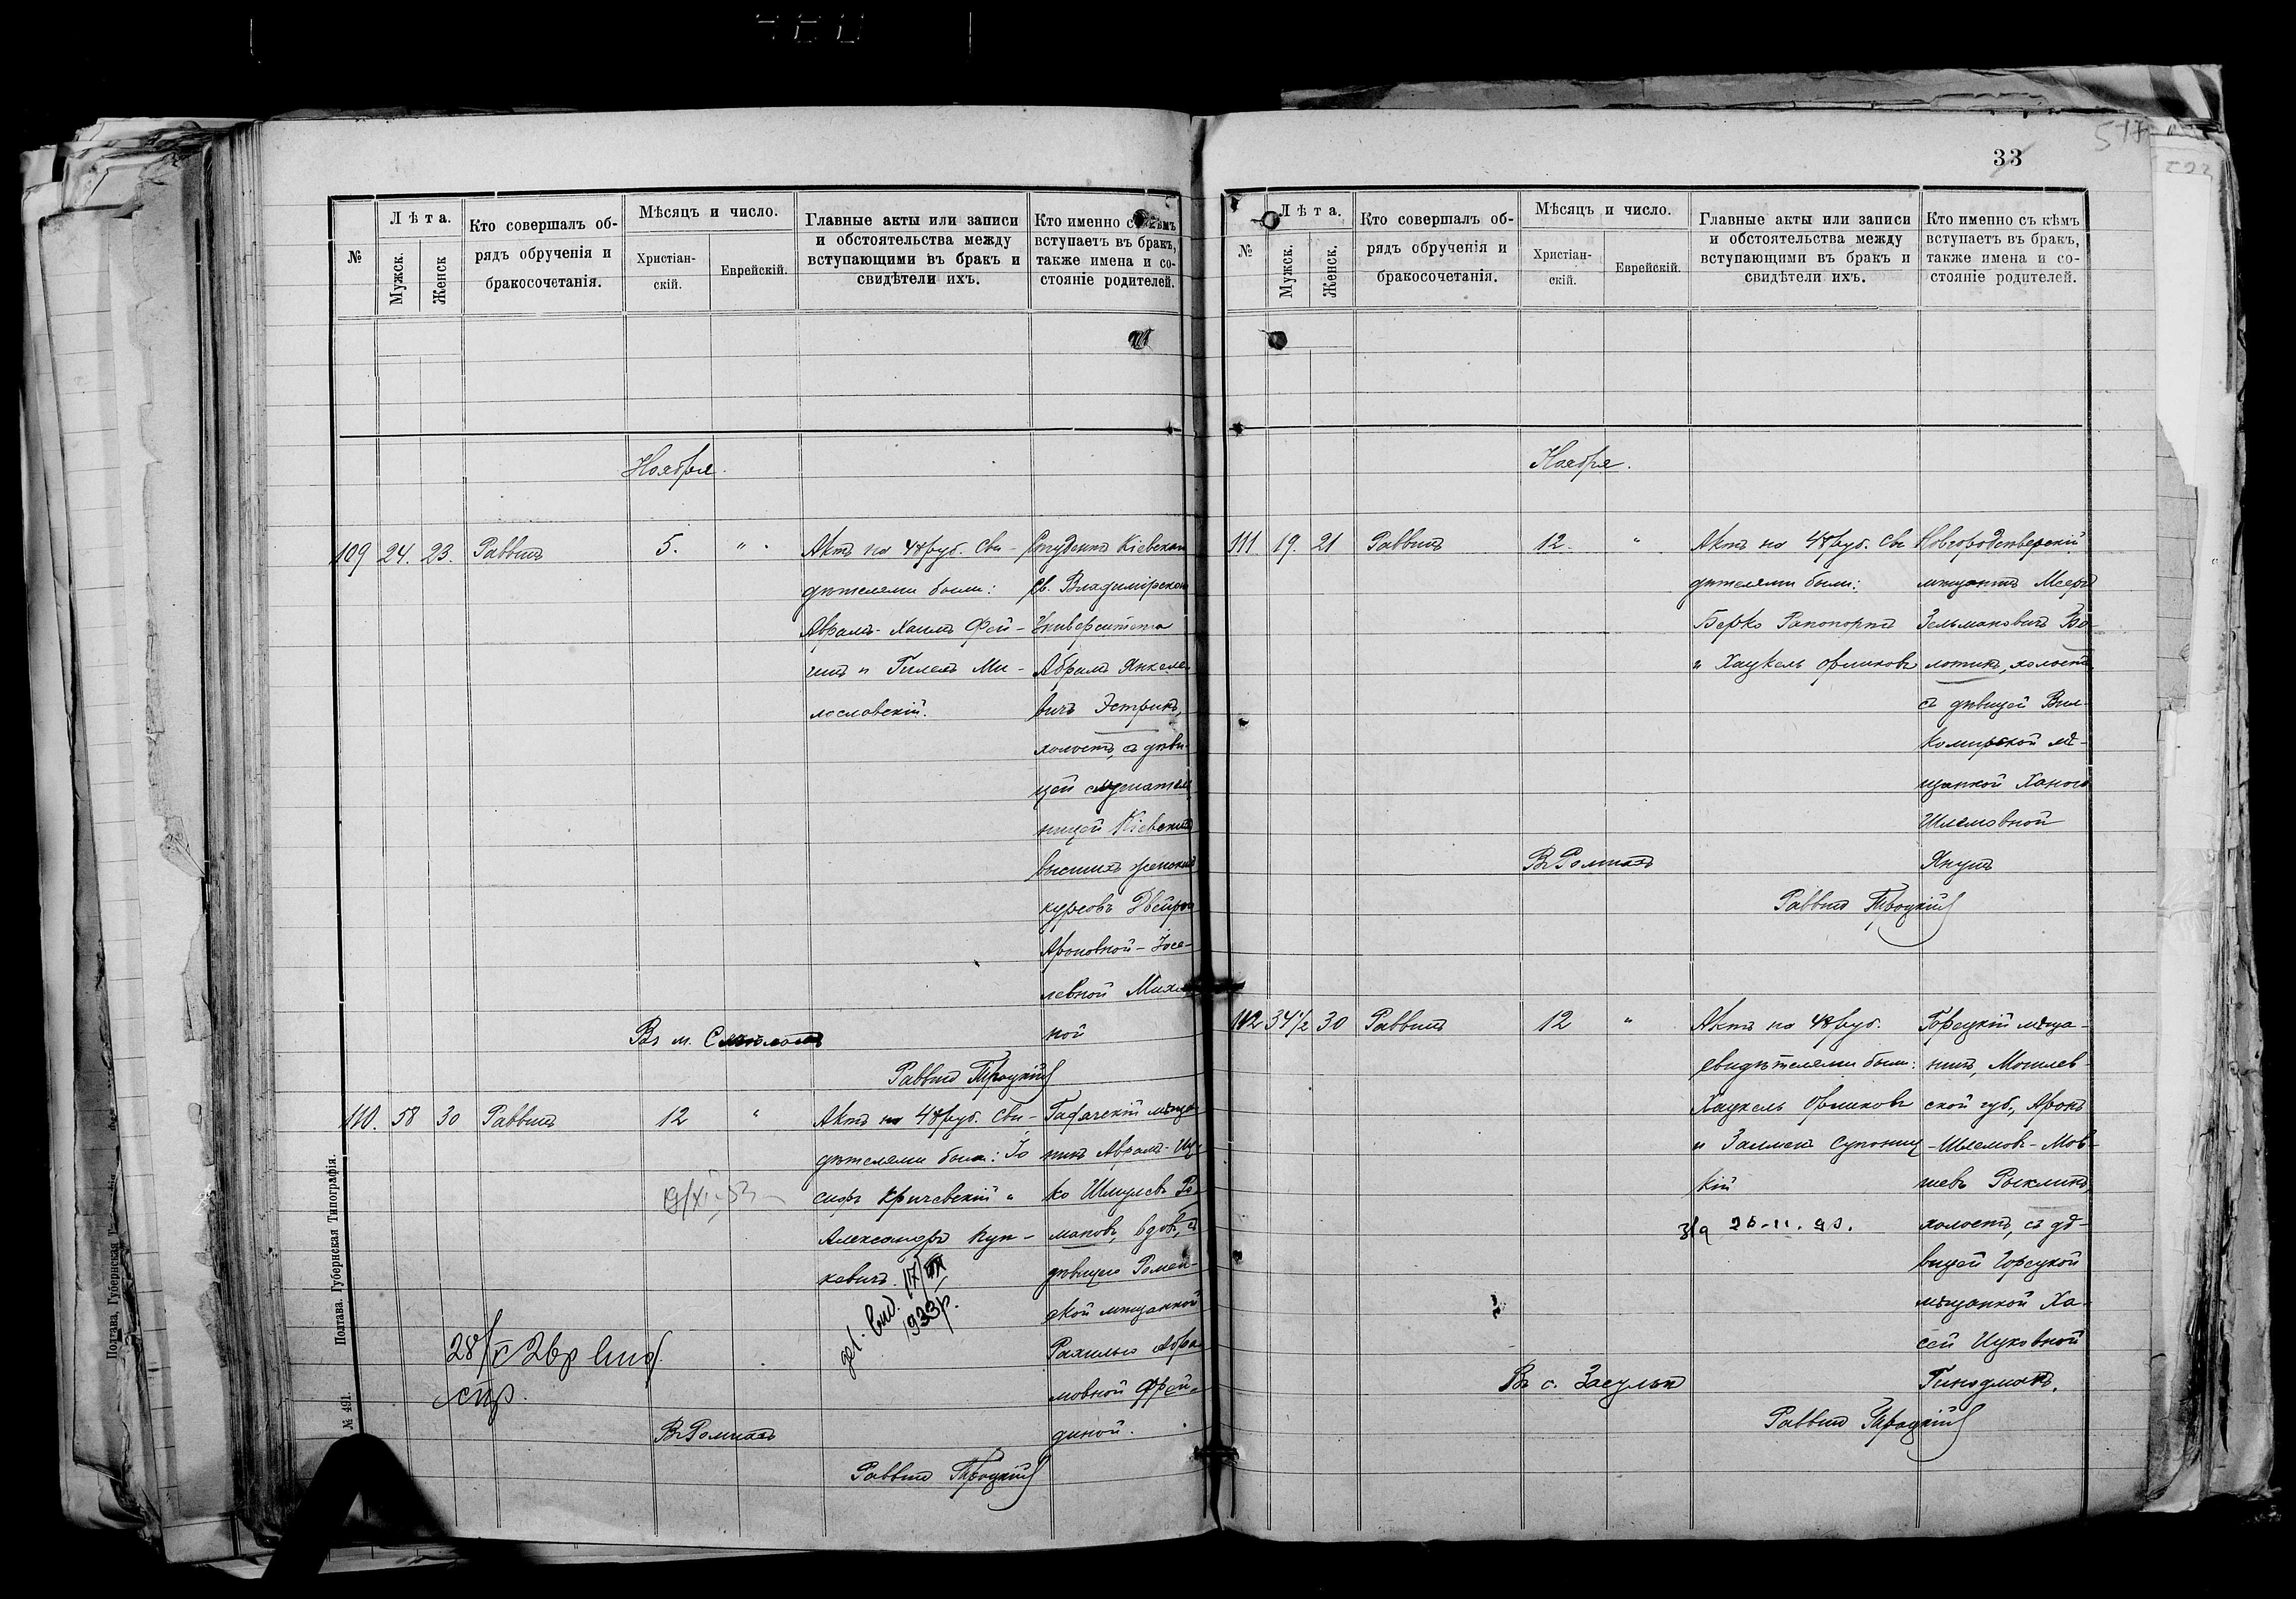 33
№
Лѣта.
Мужск.
Женск
Кто совершалъ об-
рядъ обрученія и
бракосочетанія.
Мѣсяцъ и число.
Христіан-
скій.
Еврейскій.
Главные акты или записи
и обстоятельства между
вступающими въ бракъ и
свидѣтели ихъ.
Кто именно съ кѣмъ
вступаетъ въ бракъ,
также имена и со-
стояніе родителей.
Ноября.
109 24. 23. Раввинъ 5. " "
Актъ на 48 руб. Сви-
дѣтелями были:
Аврамъ-Хаимъ Фей-
гинъ и Гилель Ми-
лославскій.
Студентъ Кіевскаго
Св. Владимірскаго
Университета
Абрамъ Янкеле-
вичъ Эстринъ,
холостъ, съ дѣви-
цей слушатель
ницей Кіевскихъ
высшихъ женскихъ
курсовъ Двейрой
Ароновной-Іосе-
левной Михли
ной
Въ м.
Раввинъ Троцкій
110. 58 30 Раввинъ 12 "
Актъ на 48 руб. Сви-
дѣтелями были: Іо
сифъ Кричевскій и
Александръ Куп-
кевичъ
Гадячскій мѣща
нинъ Аврамъ-Иц-
ко Шмулевъ Ро
мановъ, вдов., съ
дѣвицею Ромен-
ской мѣщанкой
Рахилью Абра
мовной Фрей-
диной.
17/VII
1933р.
28/V 2вр вид.
Въ Ромнахъ
Раввинъ Троцкій
Полтава. Губернская Типографія.
№ 491.
№
Лѣта.
Мужск.
Женск.
Кто совершалъ об-
рядъ обрученія и
бракосочетанія.
Мѣсяцъ и число.
Христіан-
скій.
Еврейскій.
Главные акты или записи
и обстоятельства между
вступающими въ бракъ и
свидѣтели ихъ.
Кто именно съ кѣмъ
вступаетъ въ бракъ,
также имена и со-
стояніе родителей.
Ноября.
111 19. 21 Раввинъ 12. "
Актъ на 48 руб. Сви
дѣтелями были:
Берко Рапопортъ
и Хацкель Орликовъ
Новгородсѣверскій
мѣщанинъ Мееръ
Зельмановичъ Бо-
лотинъ, холостъ,
съ дѣвицей Вил-
комирской мѣ-
щанкой Ханой
Шлемовной
Янушъ
Въ Ромнахъ
Раввинъ Троцкій
112 34 1/2 30 Раввинъ 12 "
Актъ на 48 руб.
свидѣтелями были:
Хацкель Орликовъ
и Залмен Супониц
кій
Горецкій мѣща-
нинъ, Могилев-
ской губ., Аронъ
-Шлемовъ-Мов-
шевъ Рыскинъ,
холостъ, съ дѣ-
вицей Горецкой
мѣщанкой Ха-
сей Ицковной
Гиндманъ.
Въ с. Засульѣ
Раввинъ Троцкій